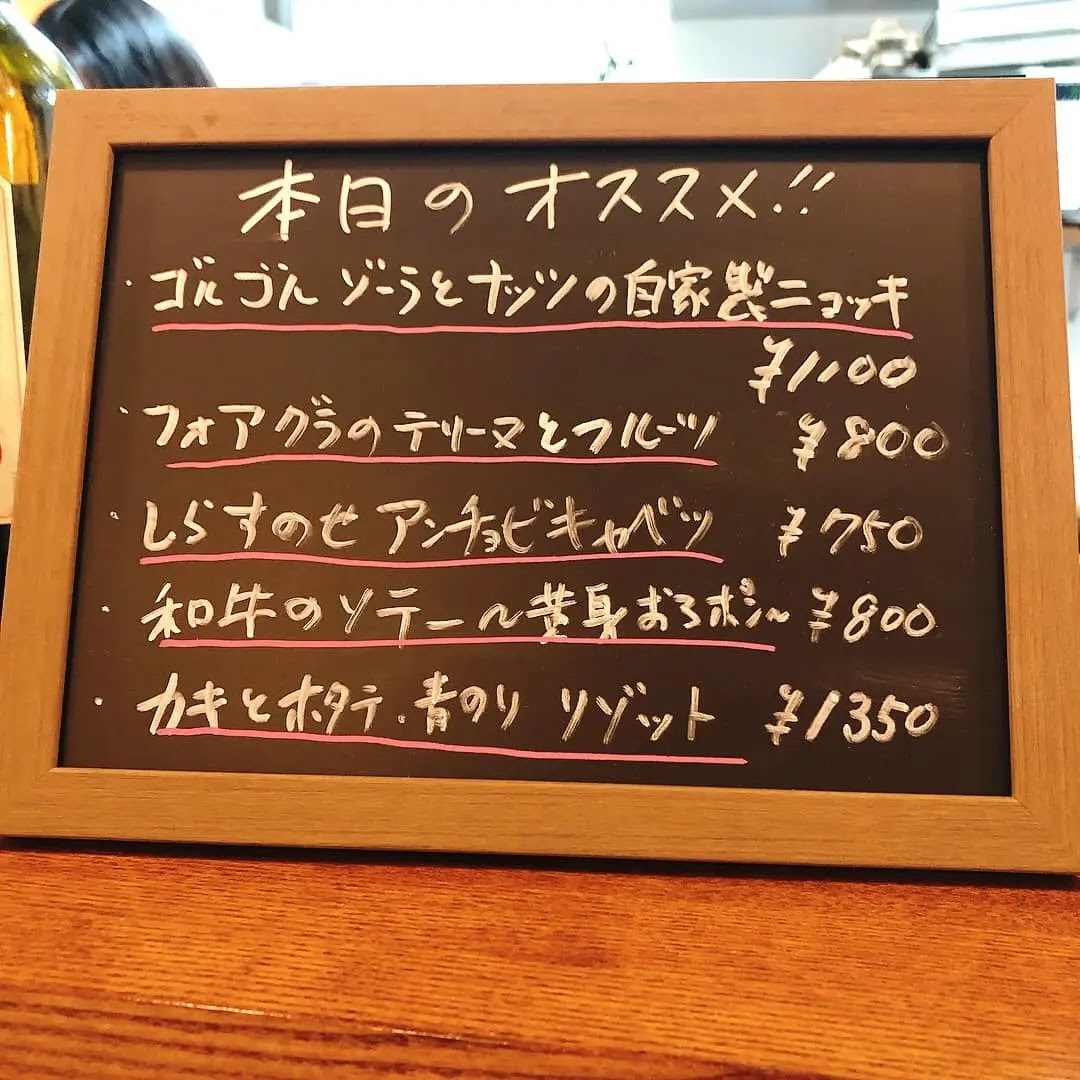 本日のオススメ!!
・ゴルゴルゾーラとナッツの自家製ニョッキ
¥1,100
・フォアグラのテリーヌとフルーツ ¥800
・しらすのせアンチョビキャベツ ¥750
・和牛のソテー 〜黄身おろポン〜 ¥800
・カキとホタテ・青のり リゾット ¥1350